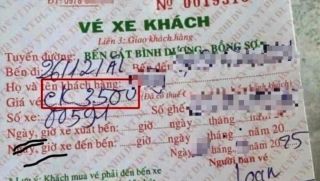 № 001931
VÉ XE KHÁCH
Liên 3: Giao khách hàng
Tuyến đường: BẾN CÁT BÌNH DƯƠNG - BỒNG SƠN
Bến đi: 26/12/AL
Họ và tên khách hàng:
Giá vé CK 350U (Đã có thuế
Số xe: 00591 Số ghế
Ngày, giờ xe xuất bến: giờ ngày năm 20
Ngày, giờ xe đến bến: giờ ngày tháng năm 2025
Người bán vé
Loan
Lưu ý: Khách mua vé phải đến bến xe